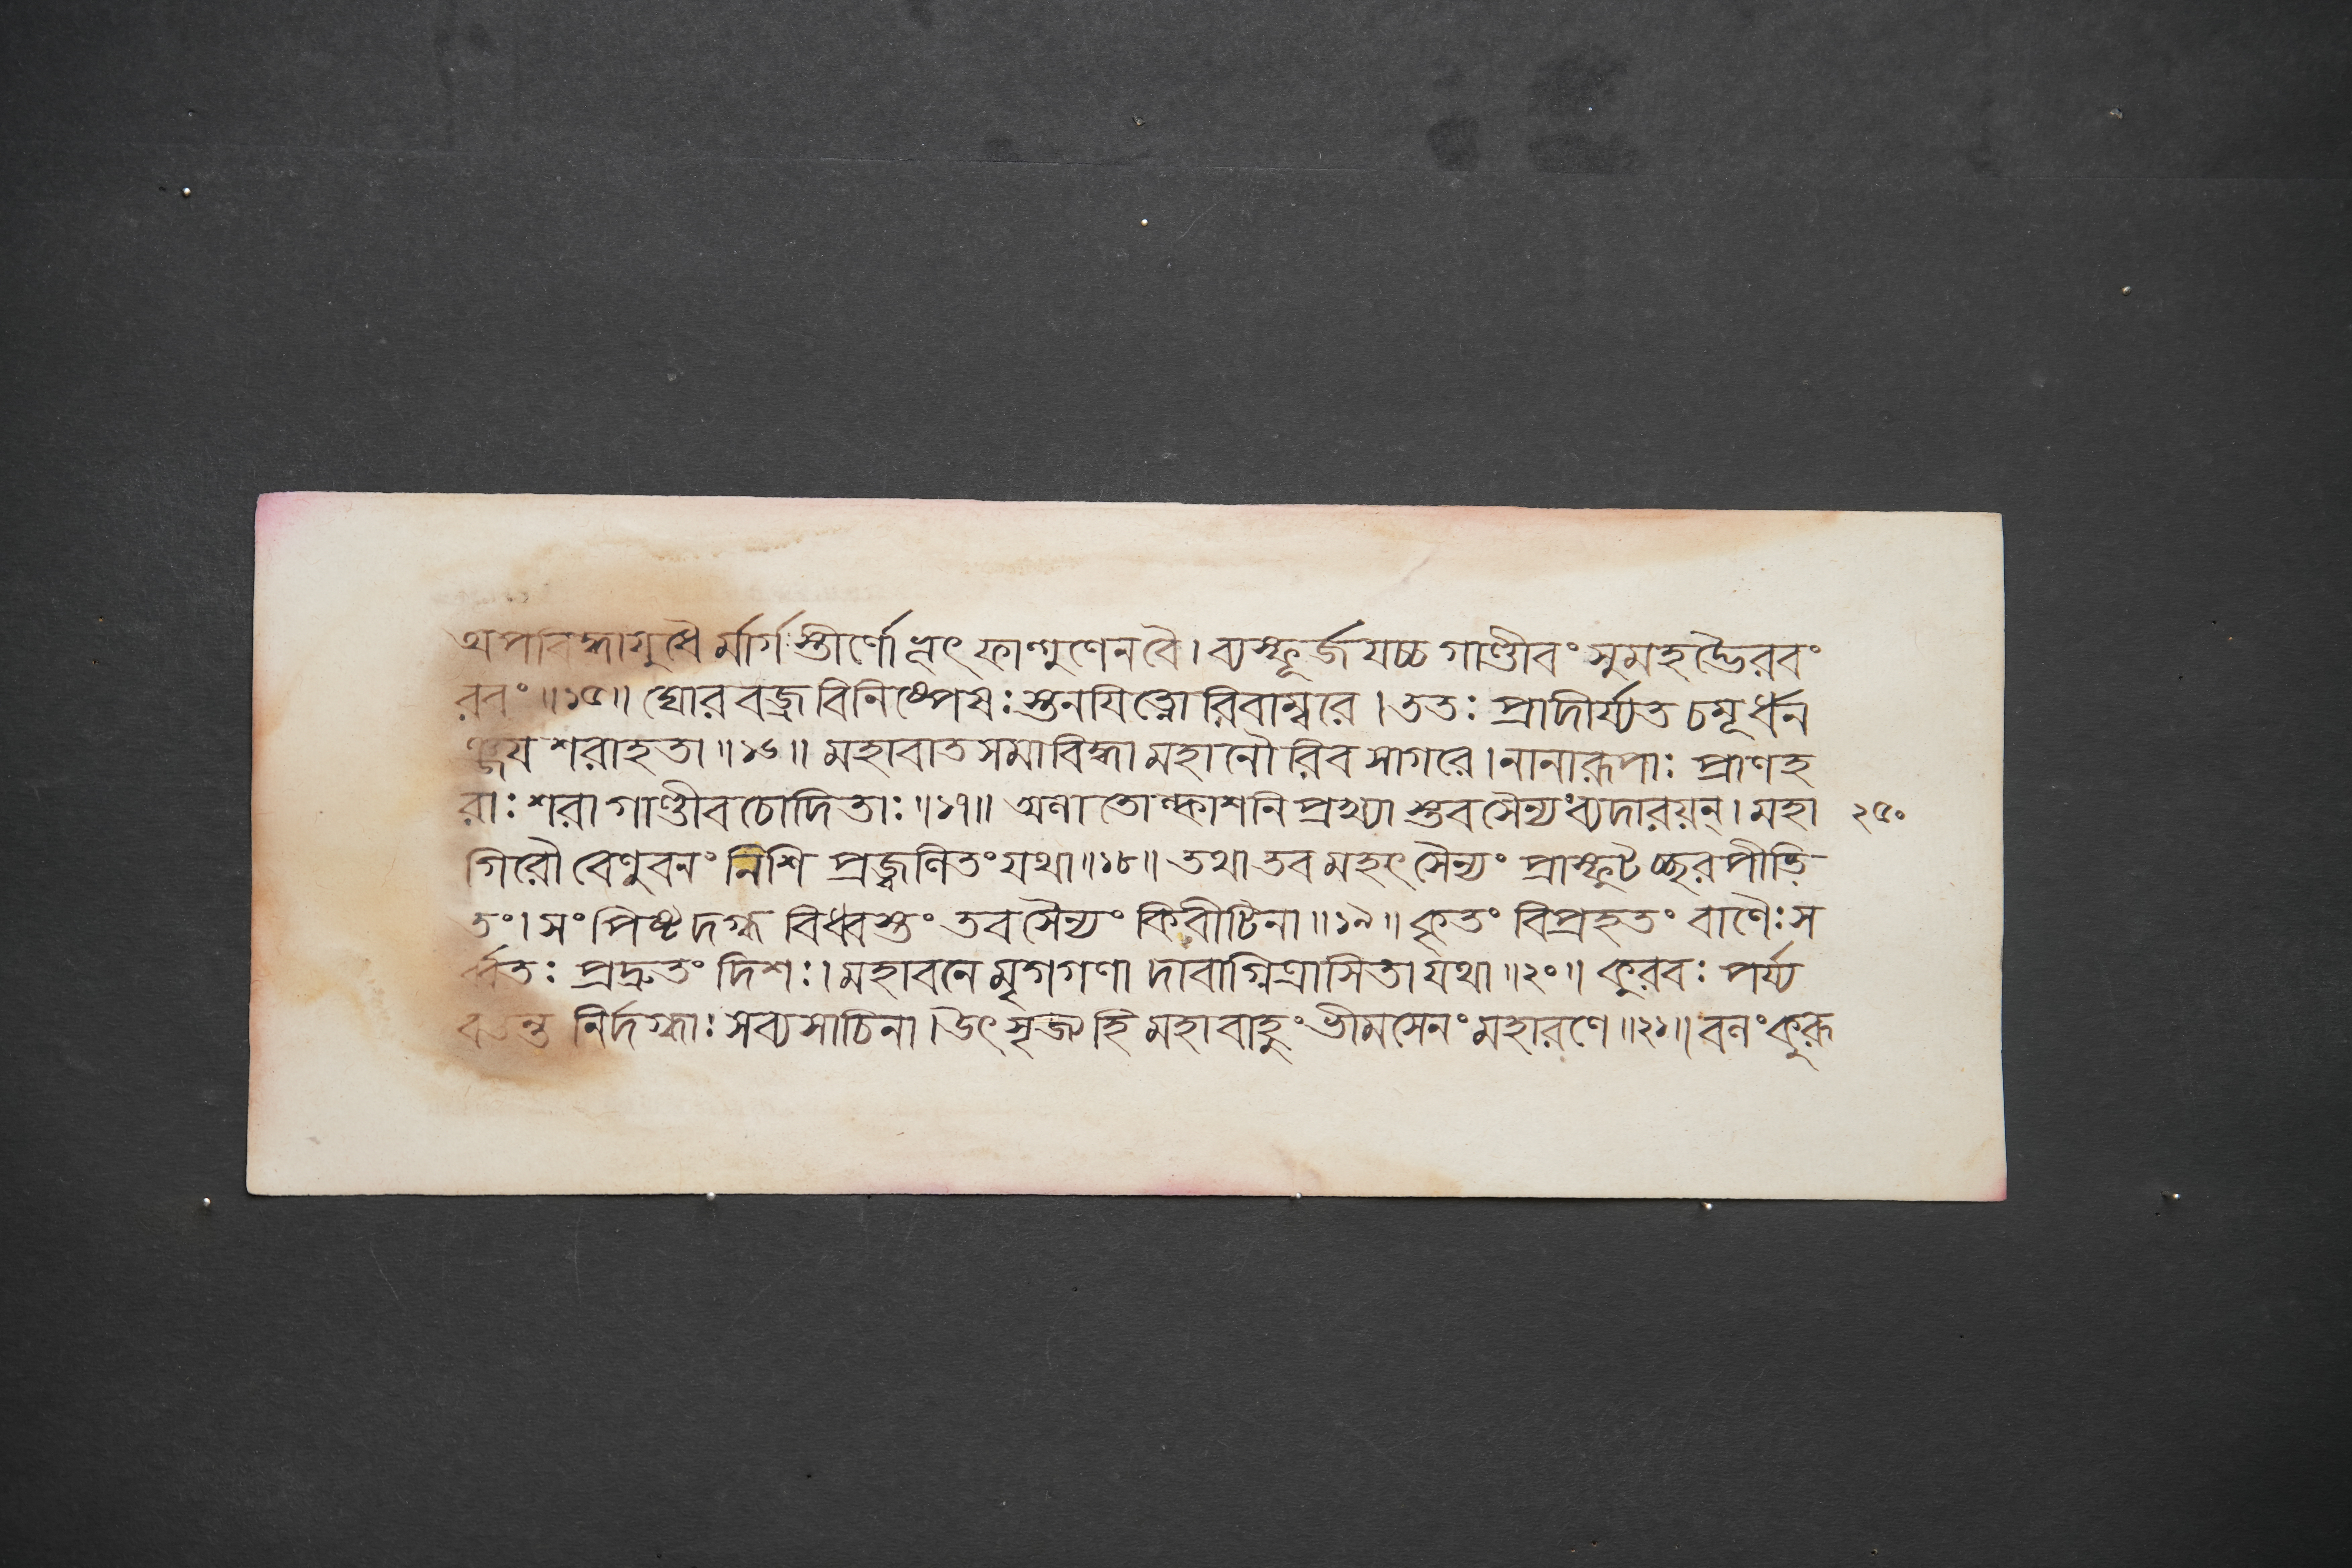 অপবিদ্ধাযুধৈর্মার্গস্তীর্ণোভূৎ ফাল্গুণেনবৈ। ব্যস্ফূর্জযচ্চ গাণ্ডীবং সুমহদ্ভৈরবং
রবং॥১৫॥ ঘোর বজ্র বিনিষ্পেষঃ স্তনযিত্নোরিবাম্বরে। ততঃ প্রাদীর্য্যত চমূর্ধন
ঞ্জয শরাহতা॥১৬॥ মহাবাত সমাবিদ্ধা মহানৌরিব সাগরে। নানারূপাঃ প্রাণহ
রাঃ শরা গাণ্ডীবচোদিতাঃ॥১৭॥ অলাতোল্কাশনিপ্রখ্যাস্তবসৈন্যংব্যদারয়ন্। মহা ২৫০
গিরৌ বেণুবনং নিশি প্রজ্জ্বলিতংযথা॥১৮॥ তথা তব মহৎ সৈন্যং প্রাস্ফুটচ্ছরপীড়ি
তং। সংপিষ্ট দগ্ধ বিধ্বস্তং তবসৈন্যং কিরীটিনা॥১৯॥ কৃতং বিপ্রহতং বাণৈঃ স
র্ব্বতঃ প্রদ্রুতং দিশঃ। মহাবনে মৃগগণা দাবাগ্নিত্রাসিতা যথা॥২০॥ কুরবঃ পর্য্য
বর্তন্ত নির্দগ্ধাঃ সব্যসাচিনা। উৎসৃজ্য হি মহাবাহুং ভীমসেনং মহারণে॥২১॥ বলং কুরূ